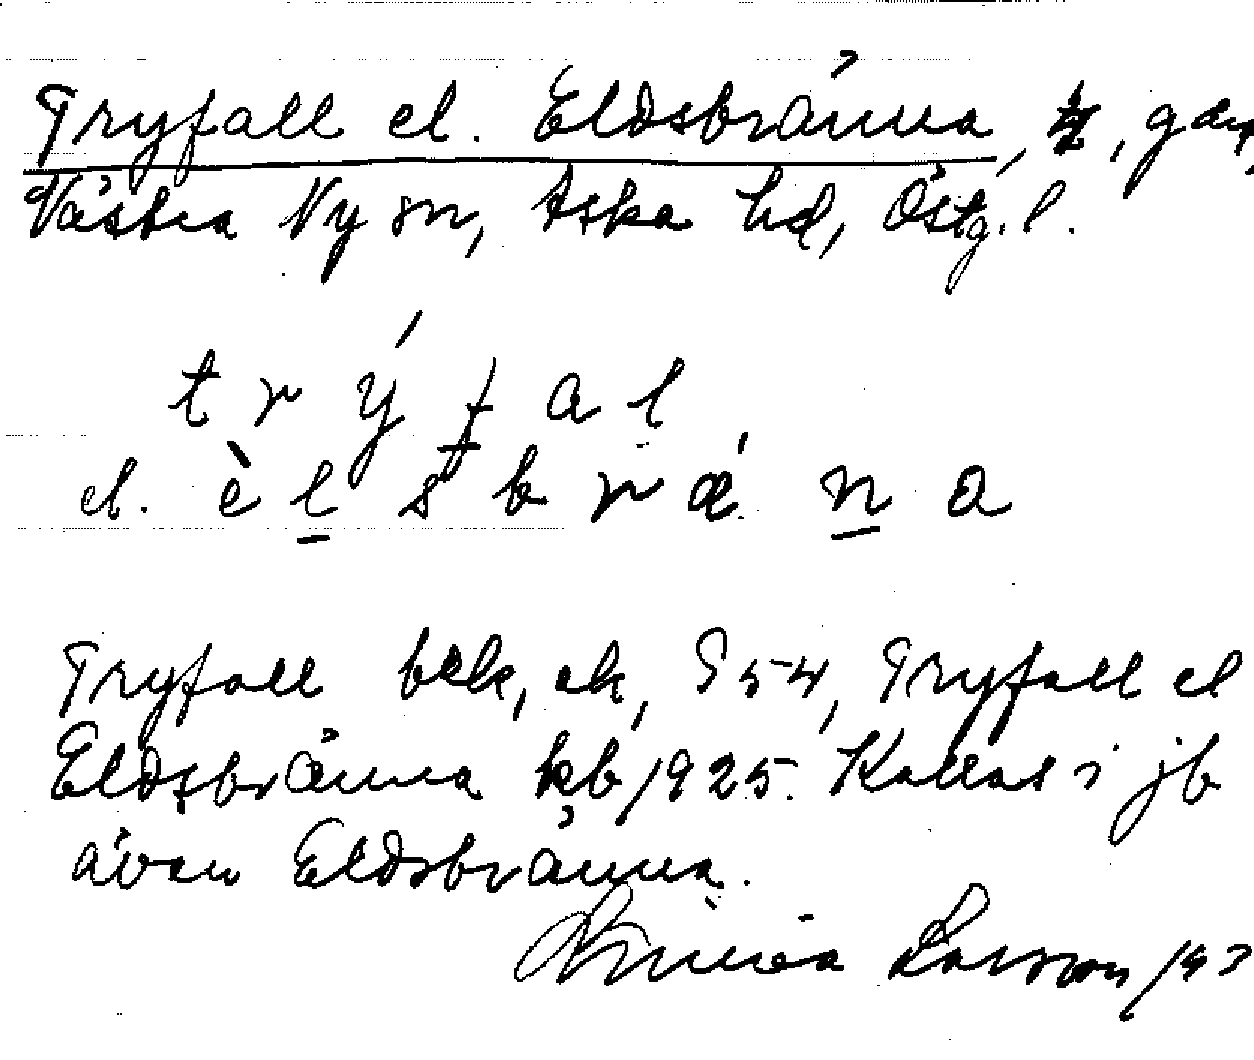 Tryfall el. Eldsbränna, går,
Västra Ny sn, Aska hd, Östg. l.
t r ý f a l
el. è l s t b r ǽ n a
Tryfall bek, ek, G 54, Tryfall el
Eldsbränna kb 1925. Kallas i jb
även Eldsbränna.
Linnéa Larsson /43